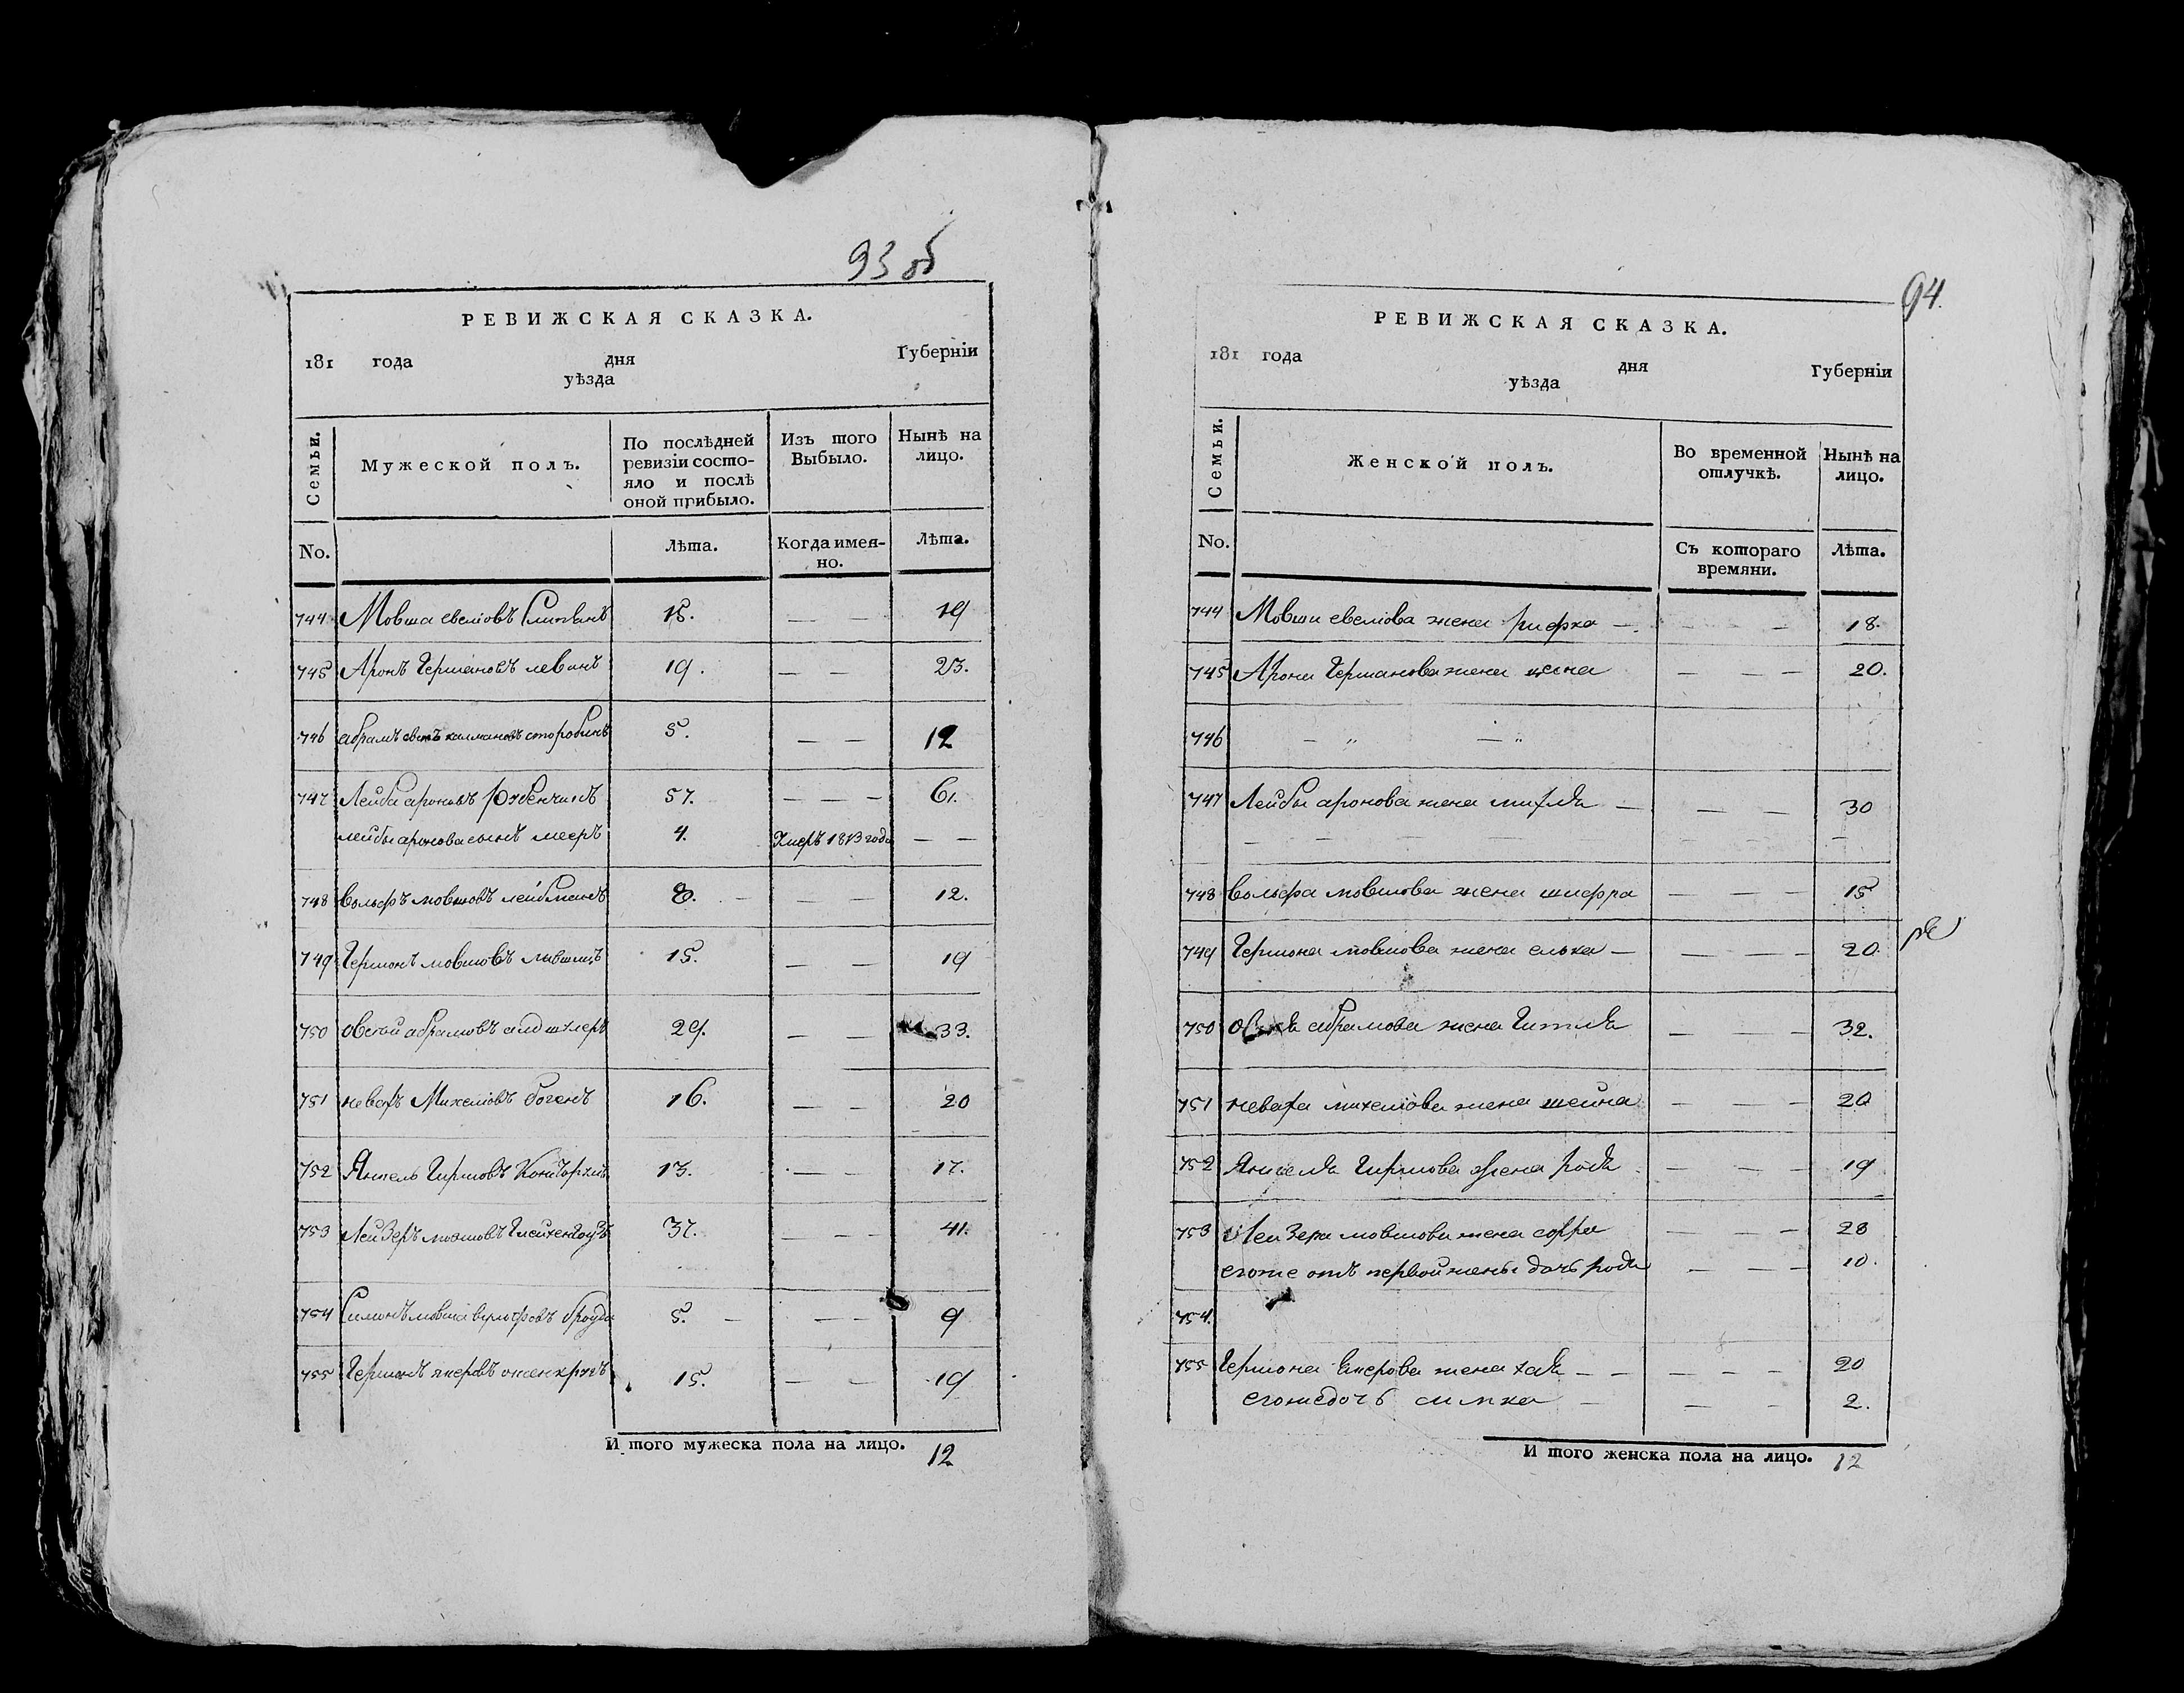 93 об
РЕВИЖСКАЯ СКАЗКА.
181 года дня Губерніи
уѣзда
Семьи.
Мужеской полъ.
По послѣдней ревизіи состо-
яло и послѣ оной прибыло.
Изъ того Выбыло.
Нынѣ на лицо.
No.
Лѣта.
Когда имен-
но.
Лѣта.
744 Мовша евеліовъ 15. — — 19
745 Аронъ Гершановъ левинъ 19. — — 23.
746 абрамъ калмановъ сторобинъ 5. — — 12
747 Лейба ароновъ 57. — — — 61.
лейбы аронова сынъ мееръ 4. Умеръ 1813 года — —
748 вольфъ мовшовъ лейбманъ 8. — — — 12.
749 Гершонъ мовшовъ лившицъ 15. — — 19
750 овсѣй абрамовъ 29. — — 33.
751 невахъ Михеліовъ богенъ 16. — — 20
752 Янкель Гиршовъ 13. — — 17.
753 Лейзеръ мовшовъ 37. — — — 41.
754 Симонъ мовша вульфовъ броуда 5. — — — 9
755 Гершонъ 15. — — 19
И того мужеска пола на лицо. 12
94.
РЕВИЖСКАЯ СКАЗКА.
181 года дня Губерніи
уѣзда
Семьи.
Женской полъ.
Во временной отлучкѣ.
Нынѣ на лицо.
No.
Съ котораго времяни.
Лѣта.
744 Мовши евеліова жена рифка — — — 18.
745 Арона Гершанова жена — — — 20.
746 — „ — „
747 Лейбы аронова жена — — — 30
— — — — —
748 вольфа мовшова жена шифра — — — 15
749 Гершона мовшова жена елька — — — — 20
750 абрамова жена Гитля — — — 32.
751 неваха михеліова жена шейна — — — 20
752 Янкеля Гиршова жена родя — — — 19
753 Лейзера мовшова жена сорра — — — 28
егоже отъ первой жены дочь родя — — — 10.
754.
755 Гершона жена хая — — — — — 20
егоже дочь симка — — — 2.
И того женска пола на лицо. 12